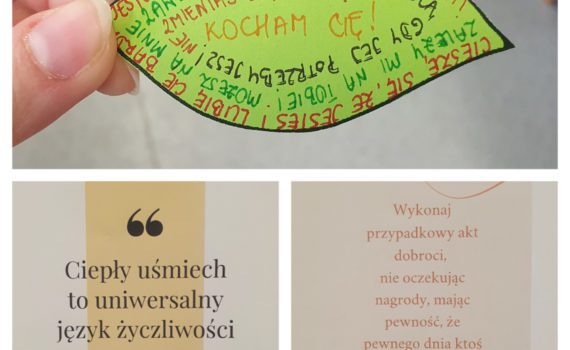 ZMIENIAJ
KOCHAM CIĘ!
GDY JEJ POTRZEBUJESZ!
NA MNIE
MOŻESZ NA
ZALEŻY MI NA TOBIE!
LUBIĘ CIĘ
CIESZĘ SIĘ, ŻE JESTEŚ!
“
Ciepły uśmiech
to uniwersalny
język życzliwości
Wykonaj
przypadkowy akt
dobroci,
nie oczekując
nagrody, mając
pewność, że
pewnego dnia ktoś